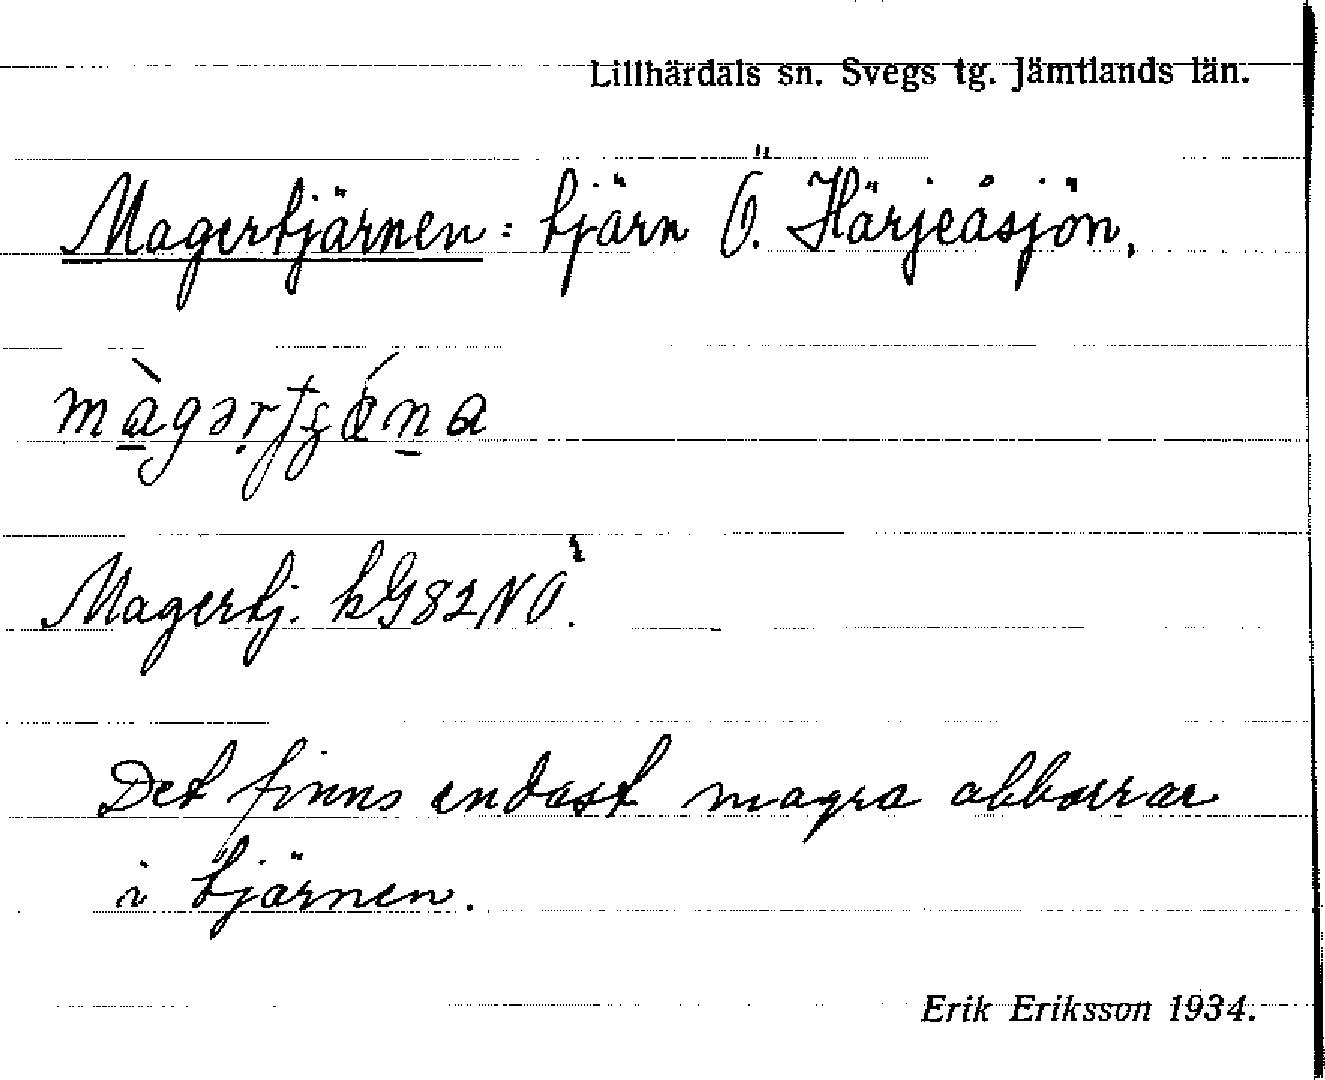 Lillhärdals sn. Svegs tg. Jämtlands län.
Magertjärnen: tjärn Ö. Härjeåsjön,
Magertj. kG82NÖ.
Det finns endast magra abborrar
i tjärnen.
Erik Eriksson 1934.